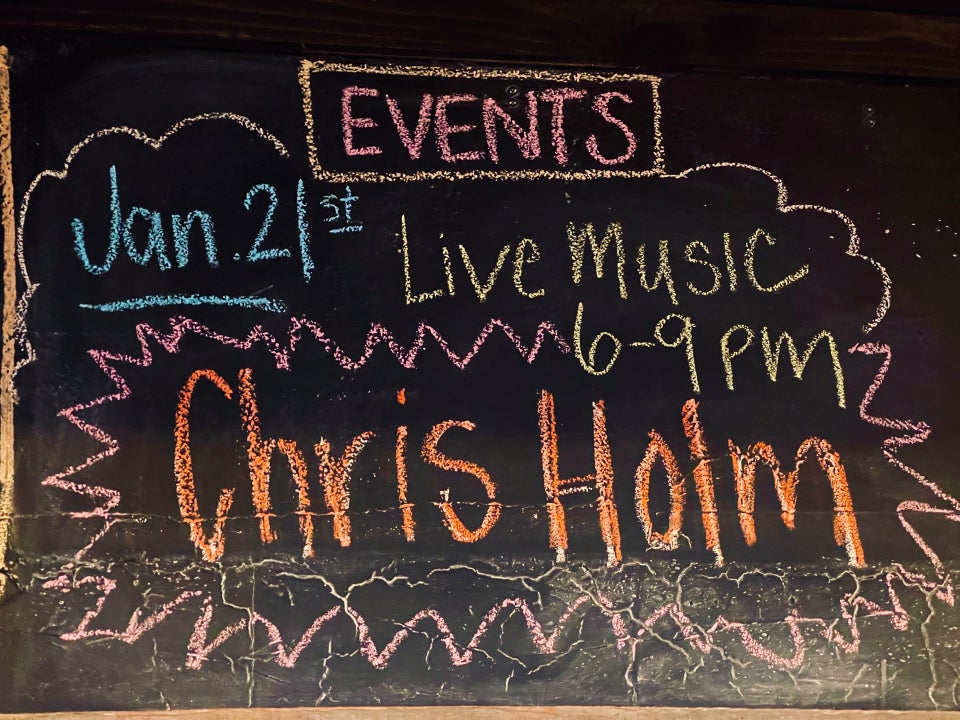 EVENTS
Jan. 21st
Live Music
6-9 pm
Chris Holm